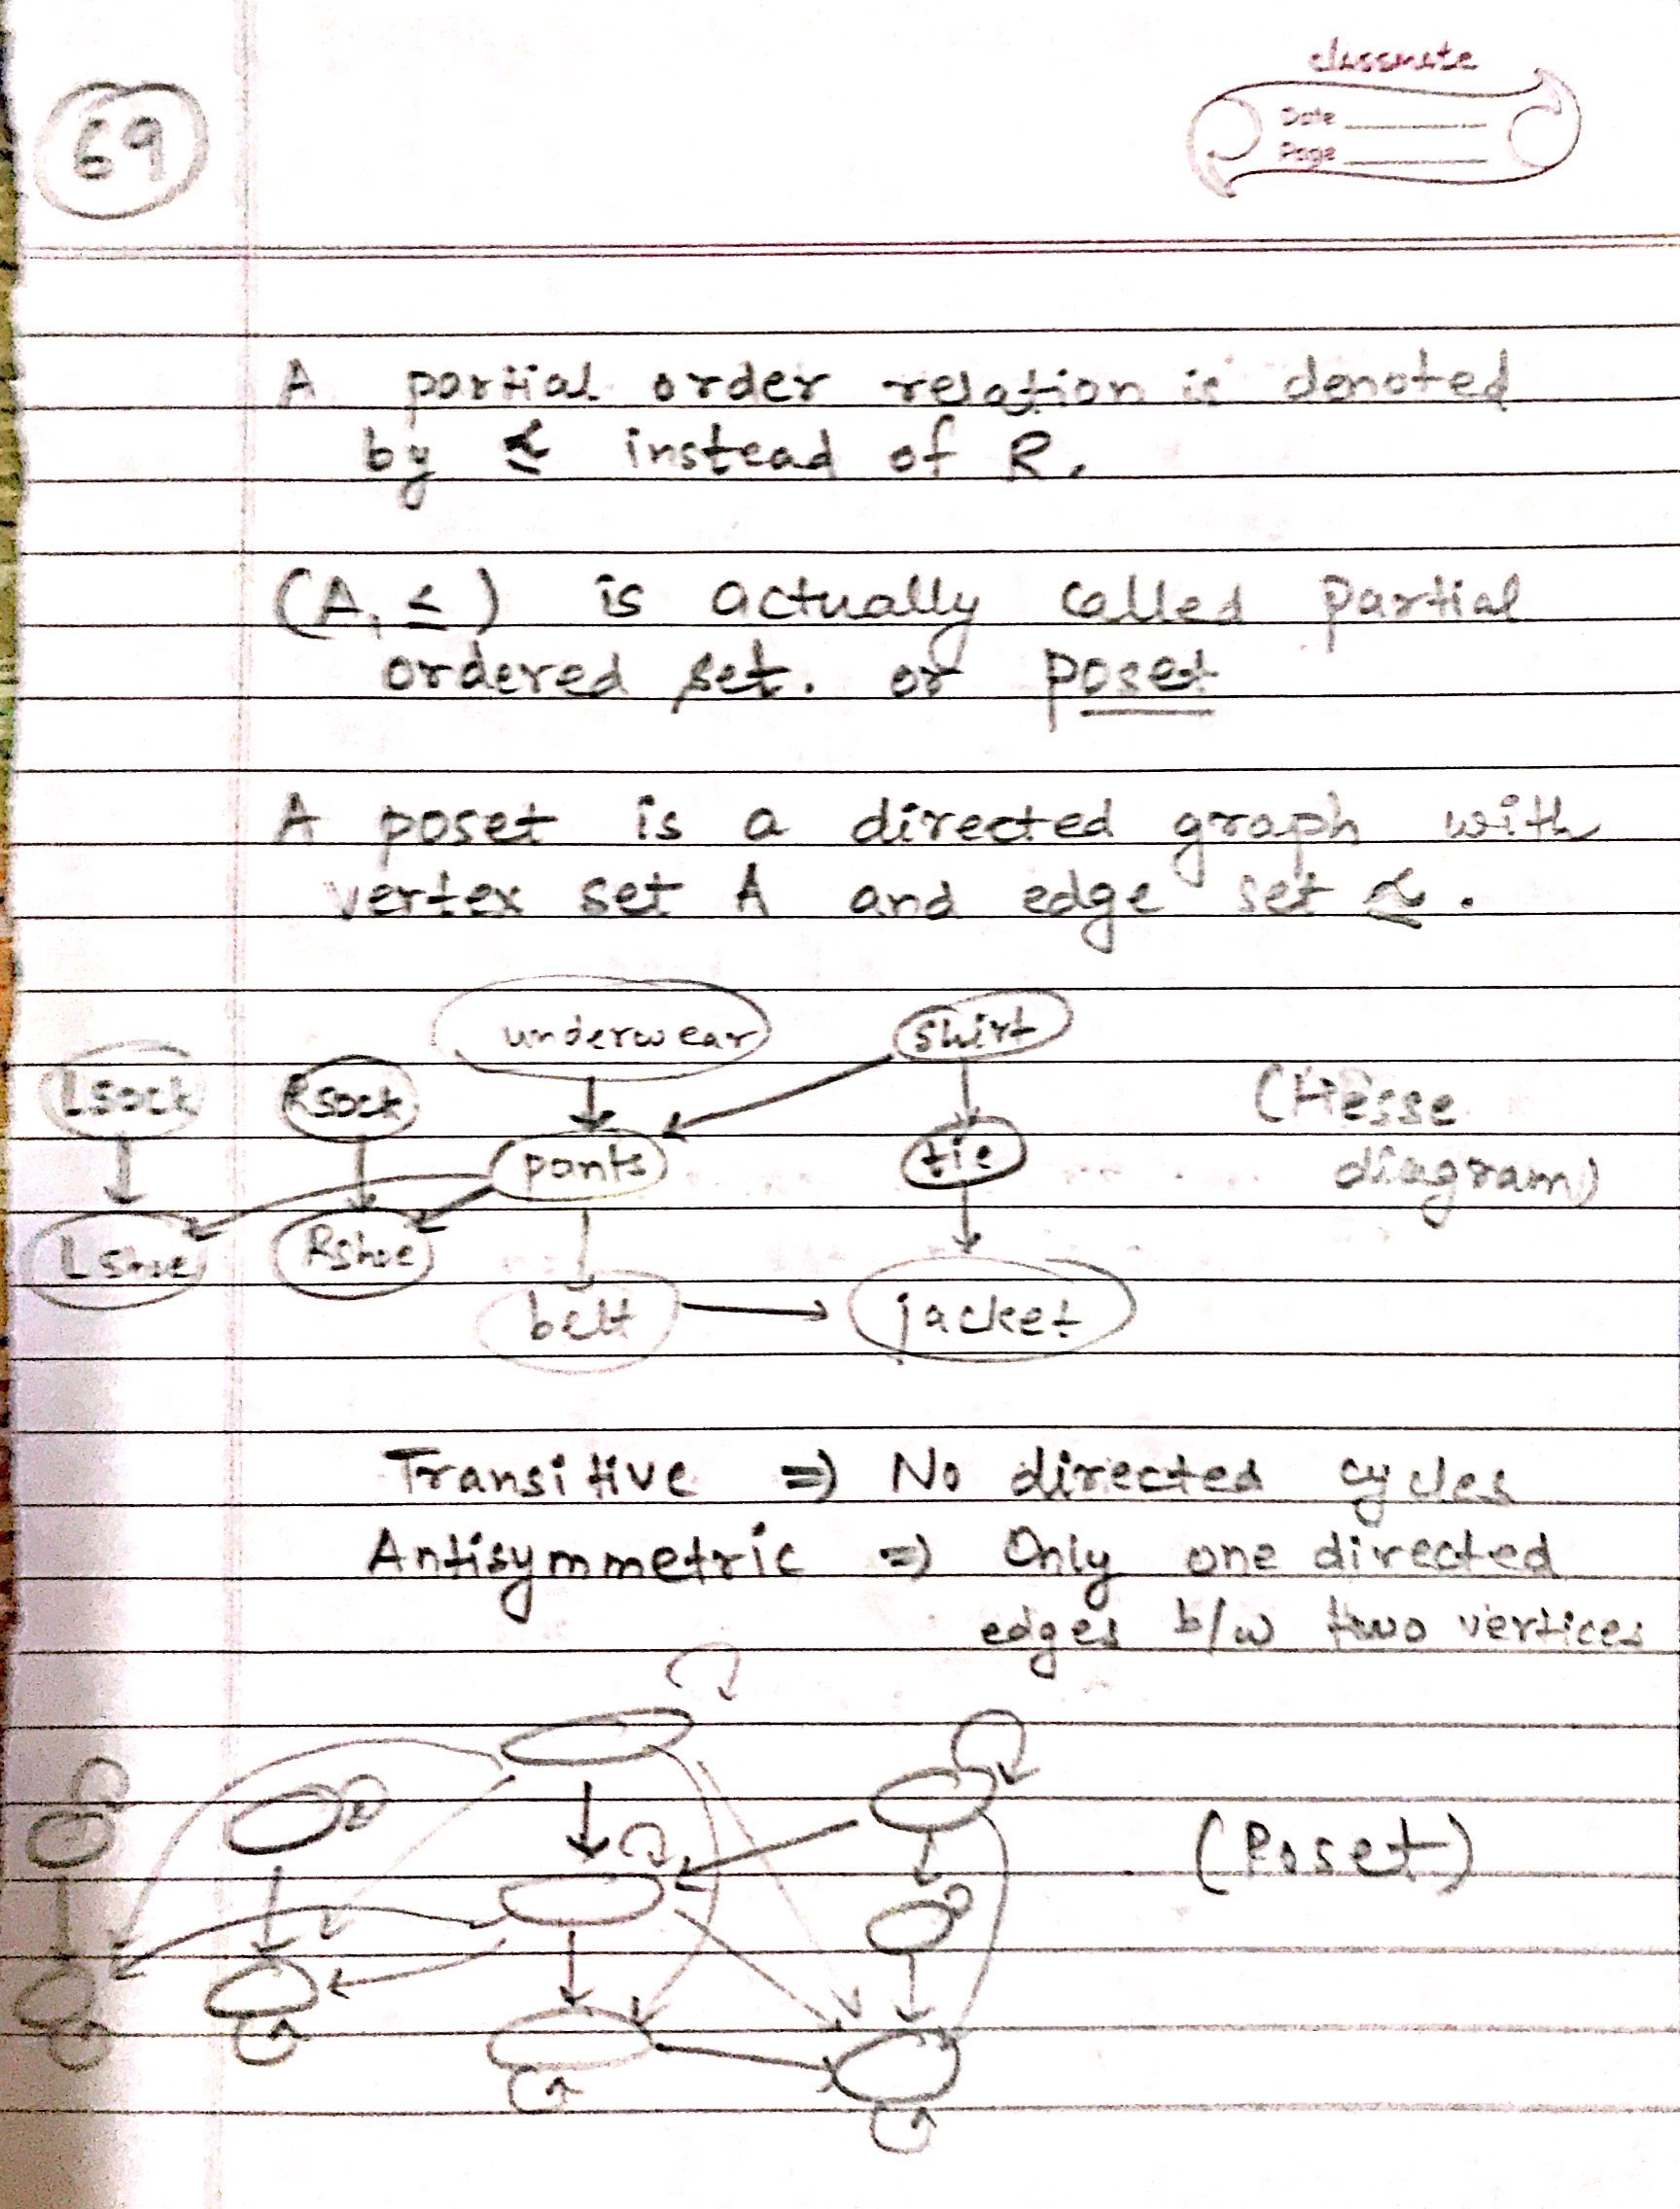 classmate
Date
Page
69
A partial order relation is denoted
by ⪯ instead of R.
(A, ⪯) is actually called partial
ordered set. or poset
A poset is a directed graph with
vertex set A and edge set ⪯.
underwear shirt
Lsock Rsock (Hesse
pants tie diagram)
Lshoe Rshoe
belt jacket
Transitive ⇒ No directed cycles
Antisymmetric ⇒ Only one directed
edges b/w two vertices
(Poset)